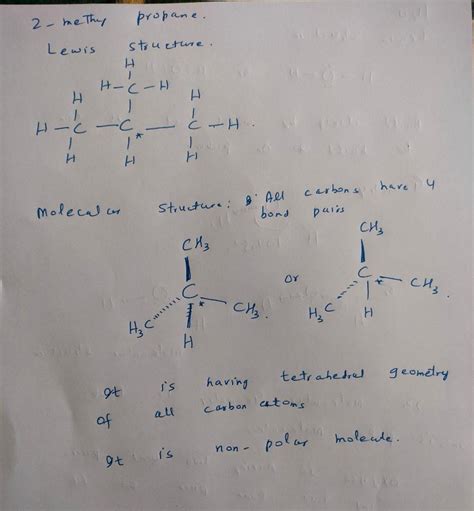 2-methy propane.
Lewis structure.
H
H-C-H
H H
H-C-C-C-H.
*
H H H
Molecular structure: All carbons have 4
bond pairs
CH3
CH3
C*
C*
or
H3C CH3.
H3C CH3.
H
H
It is having tetrahedral geometry
of all carbon atoms
It is non-polar molecule.